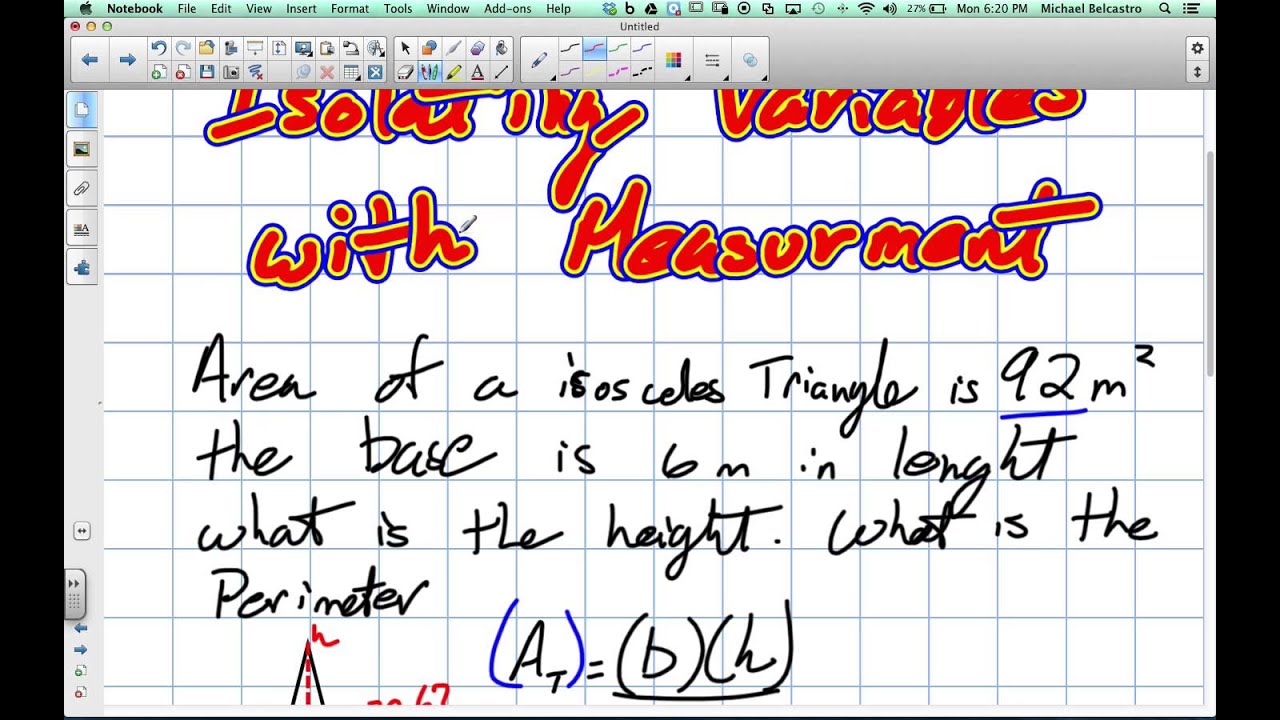 Notebook File Edit View Insert Format Tools Window Add-ons Help 27% Mon 6:20 PM Michael Belcastro
Untitled
Isolating Variables
with Measurment
Area of a isosceles Triangle is 92 m²
the base is 6 m in lenght
what is the height. What is the
Perimeter
h
(A_T) = (b)(h)